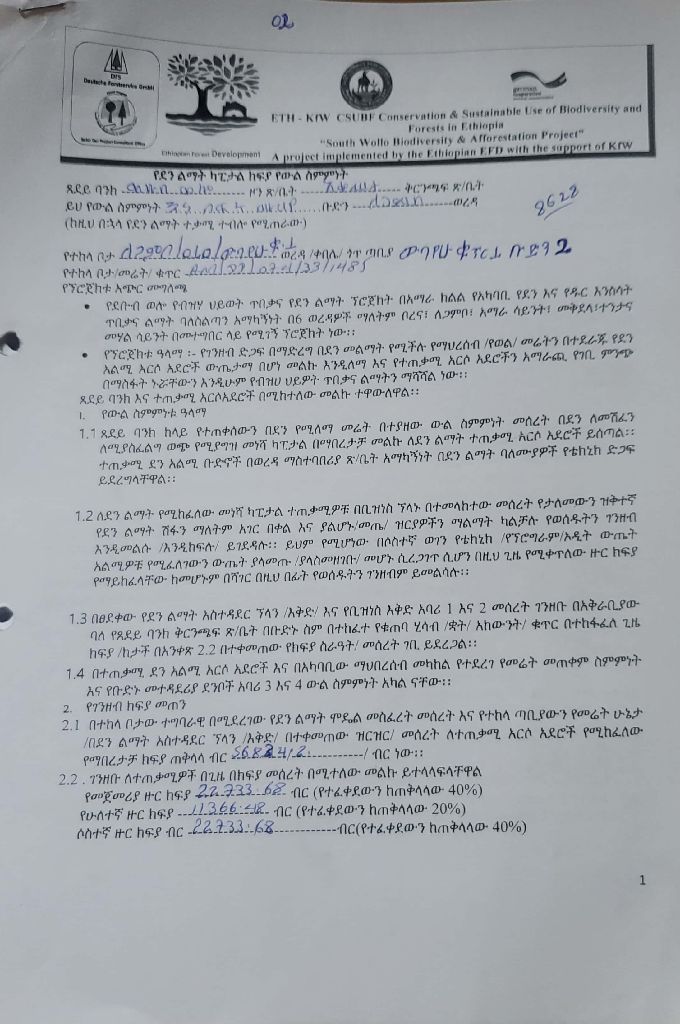 02
DFS
Deutsche Forstservice GmbH
Ethiopian Forest Development
ETH - KfW CSUBF Conservation & Sustainable Use of Biodiversity and
Forests in Ethiopia
"South Wollo Biodiversity & Afforestation Project"
A project implemented by the Ethiopian EFD with the support of KfW
የደን ልማት ካፒታል ክፍያ የውል ስምምነት
ጸደይ ባንክ ዞን ጽ/ቤት ቅርንጫፍ ጽ/ቤት
8628
ይህ የውል ስምምነት ቡድን ወረዳ
(ከዚህ በኋላ የደን ልማት ተቃሚ ተብሎ የሚጠራው)
የተከላ ቦታ ወረዳ /ቀበሌ/ ጎጥ ጣቢያ
የተከላ ቦታ/መሬት/ ቁጥር
የፕሮጀክቱ አጭር መግለጫ
• የደቡብ ወሎ የብዝሃ ህይወት ጥበቃና የደን ልማት ፕሮጀክት በአማራ ክልል የአካባቢ የደን እና የዱር እንስሳት
ጥበቃና ልማት ባለስልጣን አማካኝነት በ6 ወረዳዎች ማለትም ቦረና፣ ለጋምቦ፣ አማራ ሳይንት፣ መቅደላ፣ተንታና
መሃል ሳይንት በመተግበር ላይ የሚገኝ ፕሮጀክት ነው፡፡
• የፕሮጀክቱ ዓላማ :- የገንዘብ ድጋፍ በማድረግ በደን መልማት የሚችሉ የማህረሰብ /የወል/ መሬትን በተደራጁ የደን
አልሚ አርሶ አደሮች ውጤታማ በሆነ መልኩ እንዲለማ እና የተጠቃሚ አርሶ አደሮችን አማራጪ የገቢ ምንጭ
በማስፋት ኑሯቸውን እንዲሁም የብዝሀ ህይዎት ጥበቃና ልማትን ማሻሻል ነው፡፡
ጸደይ ባንክ እና ተጠቃሚ አርሶአደሮች በሚከተለው መልኩ ተዋውለዋል፡፡
1. የውል ስምምነቱ ዓላማ
1.1 ጸደይ ባንክ ከላይ የተጠቀሰውን በደን የሚለማ መሬት በተያዘው ውል ስምምነት መሰረት በደን ለመሸፈን
ለሚያስፈልግ ወጭ የሚያግዝ መነሻ ካፒታል በማበረታቻ መልኩ ለደን ልማት ተጠቃሚ አርሶ አደሮች ይሰጣል፡፡
ተጠቃሚ ደን አልሚ ቡድኖች በወረዳ ማስተባበሪያ ጽ/ቤት አማካኝነት በደን ልማት ባለሙያዎች የቴክኒክ ድጋፍ
ይደረግላቸዋል፡፡
1.2 ለደን ልማት የሚከፈለው መነሻ ካፒታል ተጠቃሚዎቹ በቢዝነስ ፕላኑ በተመላከተው መሰረት የታለመውን ዝቅተኛ
የደን ልማት ሽፋን ማለትም አገር በቀል እና ያልሆኑ/መጤ/ ዝርያዎችን ማልማት ካልቻሉ የወሰዱትን ገንዘብ
እንዲመልሱ /እንዲከፍሉ/ ይገደዳሉ፡፡ ይህም የሚሆነው በሶስተኛ ወገን የቴክኒክ /የፕሮግራም/ኦዲት ውጤት
አልሚዎቹ የሚፈለገውን ውጤት ያላመጡ /ያላስመዘገቡ/ መሆኑ ሲረጋገጥ ሲሆን በዚህ ጊዜ የሚቀጥለው ዙር ክፍያ
የማይከፈላቸው ከመሆኑም በሻገር በዚህ በፊት የወሰዱትን ገንዘብም ይመልሳሉ፡፡
1.3 በፀደቀው የደን ልማት አስተዳደር ፕላን /እቅድ/ እና የቢዝነስ እቅድ አባሪ 1 እና 2 መሰረት ገንዘቡ በአቅራቢያው
ባለ የጸደይ ባንክ ቅርንጫፍ ጽ/ቤት በቡድኑ ስም በተከፈተ የቁጠባ ሂሳብ /ቋት/ አከውንት/ ቁጥር በተከፋፈለ ጊዜ
ክፍያ /ከታች በአንቀጽ 2.2 በተቀመጠው የክፍያ ስራዓት/ መሰረት ገቢ ይደረጋል፡፡
1.4 በተጠቃሚ ደን አልሚ አርሶ አደሮች እና በአካባቢው ማህበረሰብ መካከል የተደረገ የመሬት መጠቀም ስምምነት
እና የቡድኑ መተዳደሪያ ደንቦች አባሪ 3 እና 4 ውል ስምምነት አካል ናቸው፡፡
2. የገንዘብ ክፍያ መጠን
2.1 በተከላ ቦታው ተግባራዊ በሚደረገው የደን ልማት ሞዴል መስፈረት መሰረት እና የተከላ ጣቢያውን የመሬት ሁኔታ
/በደን ልማት አስተዳደር ፕላን /እቅድ/ በተቀመጠው ዝርዝር/ መሰረት ለተጠቃሚ አርሶ አደሮች የሚከፈለው
የማበረታቻ ክፍያ ጠቅላላ ብር / ብር ነው፡፡
2.2 . ገንዘቡ ለተጠቃሚዎች በጊዜ በክፍያ መሰረት በሚተለው መልኩ ይተላለፍላቸዋል
የመጀመሪያ ዙር ክፍያ 22.733.68 ብር (የተፈቀደውን ከጠቅላላው 40%)
የሁለተኛ ዙር ክፍያ 11366.48 ብር (የተፈቀደውን ከጠቅላላው 20%)
ሶስተኛ ዙር ክፍያ ብር 22.733.68 ብር(የተፈቀደውን ከጠቅላላው 40%)
1